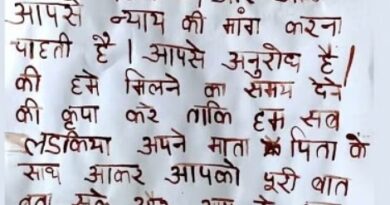 आपसे न्याय की मांग करना
चाहती है । आपसे अनुरोध है ।
की हमे मिलने का समय देने
की कृपा करे ताकि हम सब
लडकिया अपने माता पिता के
साथ आकर आपको पूरी बात
बता सके